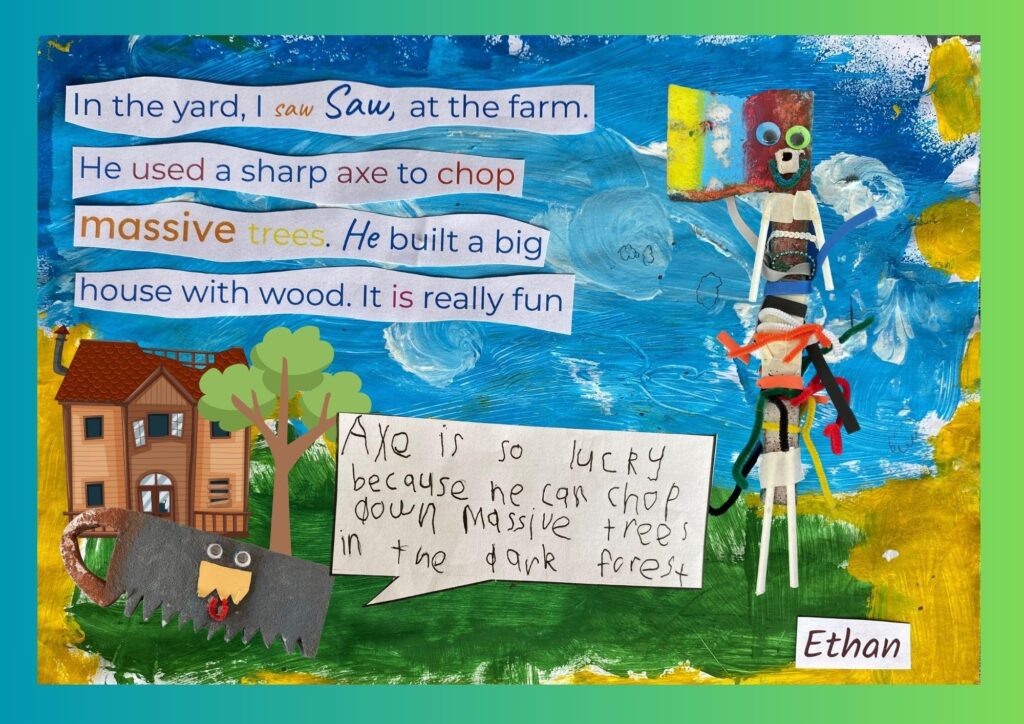 In the yard, I saw Saw, at the farm.
He used a sharp axe to chop
massive trees. He built a big
house with wood. It is really fun
Axe is so lucky
because he can chop
down massive trees
in the dark forest
Ethan